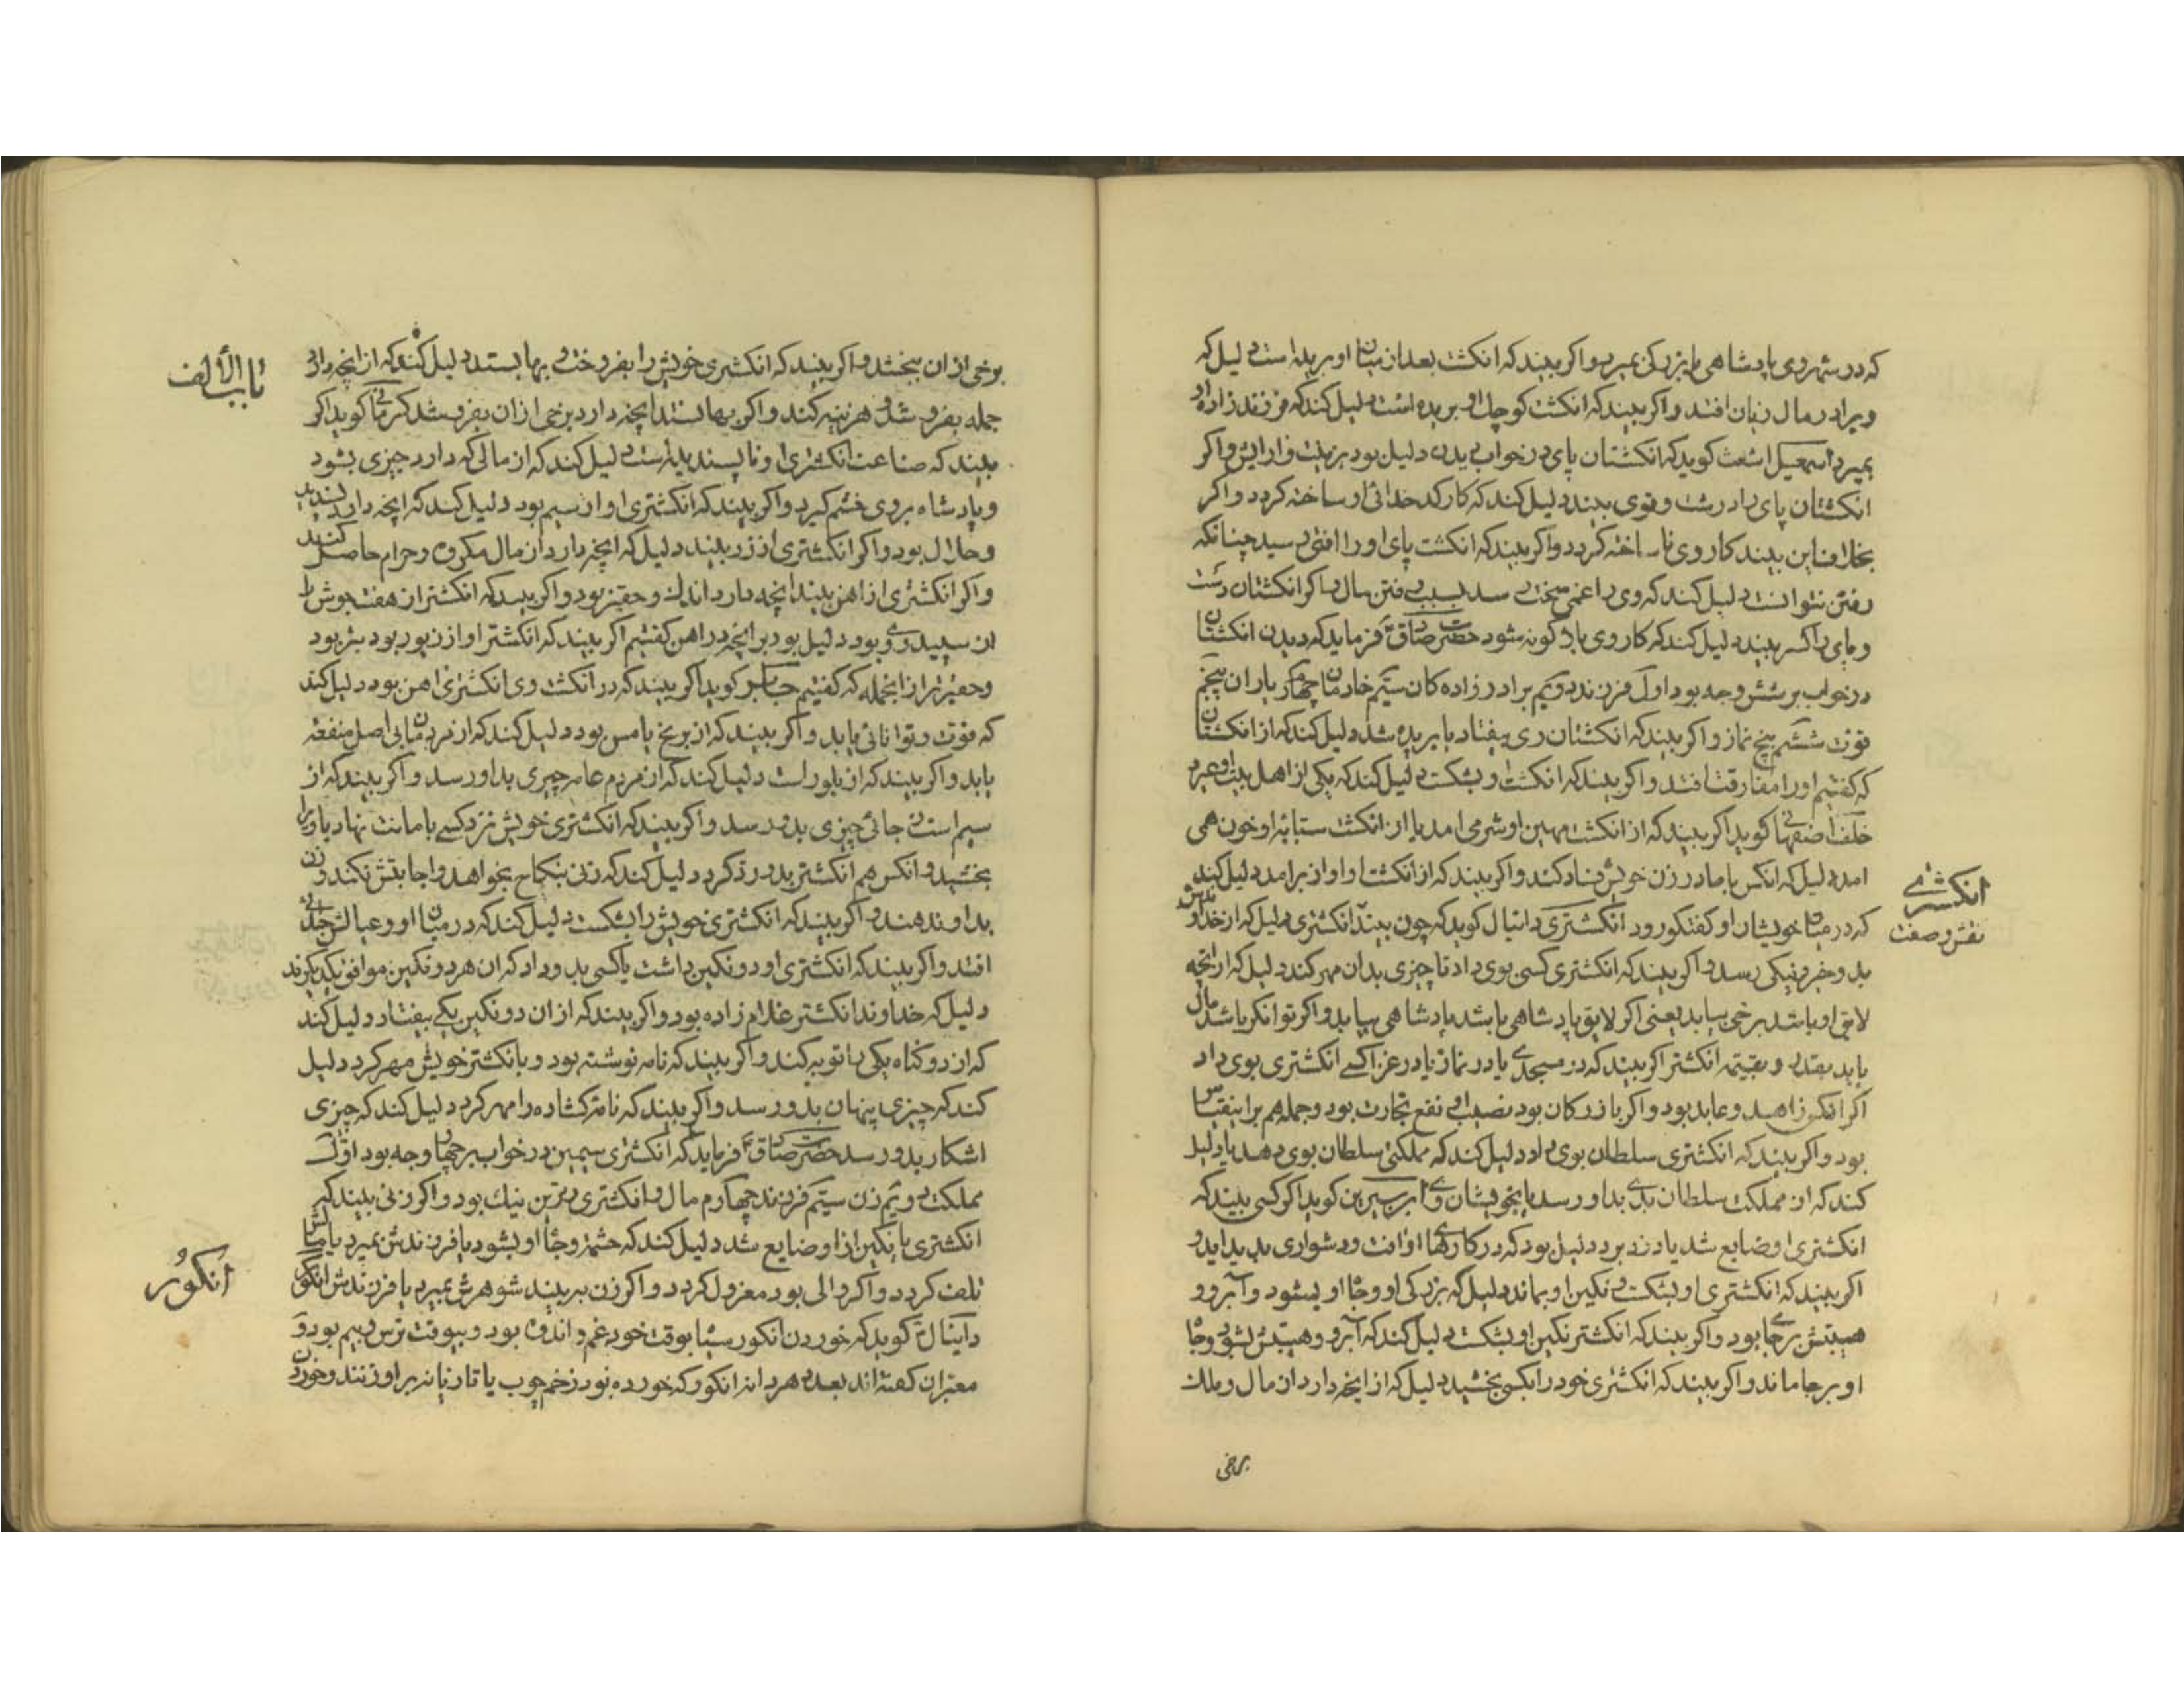 که در شهر وی پادشاهی یا بزرکی بمیرد واکر بیند که انکشت بعد از میان او بریده است دلیل که
ویرا در مال زیان افتد واکر بیند که انکشت کوچك او بریده است دلیل کند که فرزند زاده او
بمیرد اسمعیل اشعث کوید که انکشتان پای در خواب دیدن دلیل بود بر زینت و ارایش واکر
انکشتان پای را درست وقوی بیند دلیل کند که کار کدخدائی او ساخته کردد واکر
بخلاف این بیند کار وی نا ساخته کردد واکر بیند که انکشت پای او را افتی رسید چنانکه
رفتن نتوانست دلیل کند که وی را غمی سخت رسد بسبب رفتن مال واکر انکشتان دست
و پای را کسر بیند دلیل کند که کار وی باژکونه شود حضرت صادق فرماید که دیدن انکشتان
در خواب بر شش وجه بود اول فرزند دویم برادر زاده کان سیم خادمان چهارم یاران پنجم
قوت ششم پنج نماز واکر بیند که انکشتان وی بیفتاد یا بریده شد دلیل کند که از انکشتان
که کفتیم او را مفارقت افتد واکر بیند که انکشت او بشکست دلیل کند که یکی از اهل بیت او بمیرد
خلف اصفهانی کوید اکر بیند که از انکشت مهین او شیر می امد یا از انکشت سبابه او خون همی
امد دلیل که انکس با مادر زن خویش فساد کند واکر بیند که از انکشت او اواز بر امد دلیل کند
انکشتری
که در میان خویشان او کفتکو رود انکشتری دانیال کوید که چون بیند انکشتری دلیل که از خداوندش
نقش وصفت
بدو خیر و نیکی رسد واکر بیند که انکشتری کسی بوی داد تا چیزی بدان مهر کند دلیل که از انچه
لایق او باشد برخی بیابد یعنی اکر لایق پادشاهی باشد پادشاهی بیابد واکر توانکر باشد مال
یابد بقدر و بقیته انکشتر اکر بیند که در مسجدی یا در نماز یا در غزا کسی انکشتری بوی داد
اکر انکس زاهد وعابد بود واکر بازرکان بود نصیب او نفع تجارت بود وجمله هم بر اینقیاس
بود واکر بیند که انکشتری سلطان بوی داد دلیل کند که مملکتی سلطان بوی دهد یا دلیل
کند که از مملکت سلطان بدی بدو رسد یا بخویشان وی ابن سیرین کوید اکر کسی بیند که
انکشتری او ضایع شد یا دزد برد دلیل بود که در کارهای او افت ودشواری پدید اید و
اکر بیند که انکشتری او بشکست ونکین او بماند دلیل که بزرکی او وجاه او بشود وآبرو و
هیبتش برجا بود واکر بیند که انکشتر نکین او بشکست دلیل کند که آبرو وهیبتش بشود وجاه
او برجا ماند واکر بیند که انکشتری خود را بکسی بخشید دلیل که از انچه دارد از مال وملك
برخی
باب الألف
برخی ازان ببخشد واکر بیند که انکشتری خویش را بفروخت و بها بستد دلیل کند که از انچه دارد
جمله بفروشد و هزینه کند واکر بها نستد انچه دارد برخی ازان بفروشد کرمانی کوید اکر
بیند که صناعت انکشتری او ناپسندیده است دلیل کند که از مالی که دارد چیزی بشود
و پادشاه بر وی خشم کیرد واکر بیند که انکشتری او از سیم بود دلیل کند که انچه دارد پسندیده
وحلال بود واکر انکشتری از زر بیند دلیل که انچه دارد از مال مکروه وحرام حاصل کند
واکر انکشتری از اهن بیند انچه دارد اندك وحقیر بود واکر بیند که انکشتر از هفتجوش یا
از سپید روی بود دلیل بود بر انچه در اهن کفتیم اکر بیند که انکشتر او از زیور بود بتر بود
وحقیرتر از اینجمله که کفتیم جابر کوید اکر بیند که در انکشت وی انکشتری اهن بود دلیل کند
که قوت و توانائی یابد واکر بیند که از برنج یا مس بود دلیل کند که از مردمان بی اصل منفعت
یابد واکر بیند که از بلور است دلیل کند که از مردم عامه چیزی بدو رسد واکر بیند که از
سیم است از جائی چیزی بدو رسد واکر بیند که انکشتری خویش نزد کسی بامانت نهاد یا ویرا
بخشید وانکس هم انکشتر بدو رد کرد دلیل کند که زنی بنکاح بخواهد واجابتش نکند وزن
بداو ندهند واکر بیند که انکشتری خویش را بشکست دلیل کند که در میان او وعیالش جدائی
افتد واکر بیند که انکشتری او دو نکین داشت یا کسی بدو داد که ان هر دو نکین موافق یکدیکرند
دلیل که خداوند انکشتر غلام زاده بود واکر بیند که از ان دو نکین یکی بیفتاد دلیل کند
که از دو کناه یکی را توبه کند واکر بیند که نامه نوشته بود و بانکشتر خویش مهر کرد دلیل
کند که چیزی پنهان بدو رسد واکر بیند که نامه کشاده را مهر کرد دلیل کند که چیزی
اشکار بدو رسد حضرت صادق فرماید که انکشتری سیمین در خواب بر چهار وجه بود اول
مملکت دویم زن سیم فرزند چهارم مال وانکشتری زرین نیك بود واکر زنی بیند که
انکشتری با نکین از او ضایع شد دلیل کند که حشمت وجاه او بشود یا فرزندش بمیرد یا مالش
انکور
تلف کردد واکر والی بود معزول کردد واکر زن بد بیند شوهرش بمیرد یا فرزندش انکور
دانیال کوید که خوردن انکور سیاه بوقت خود غم واندوه بود و بیوقت ترس و بیم بود و
معبران کفته اند بعدد هر دانه انکور که خورده بود زخم چوب یا تازیانه بر او زنند وخوردن